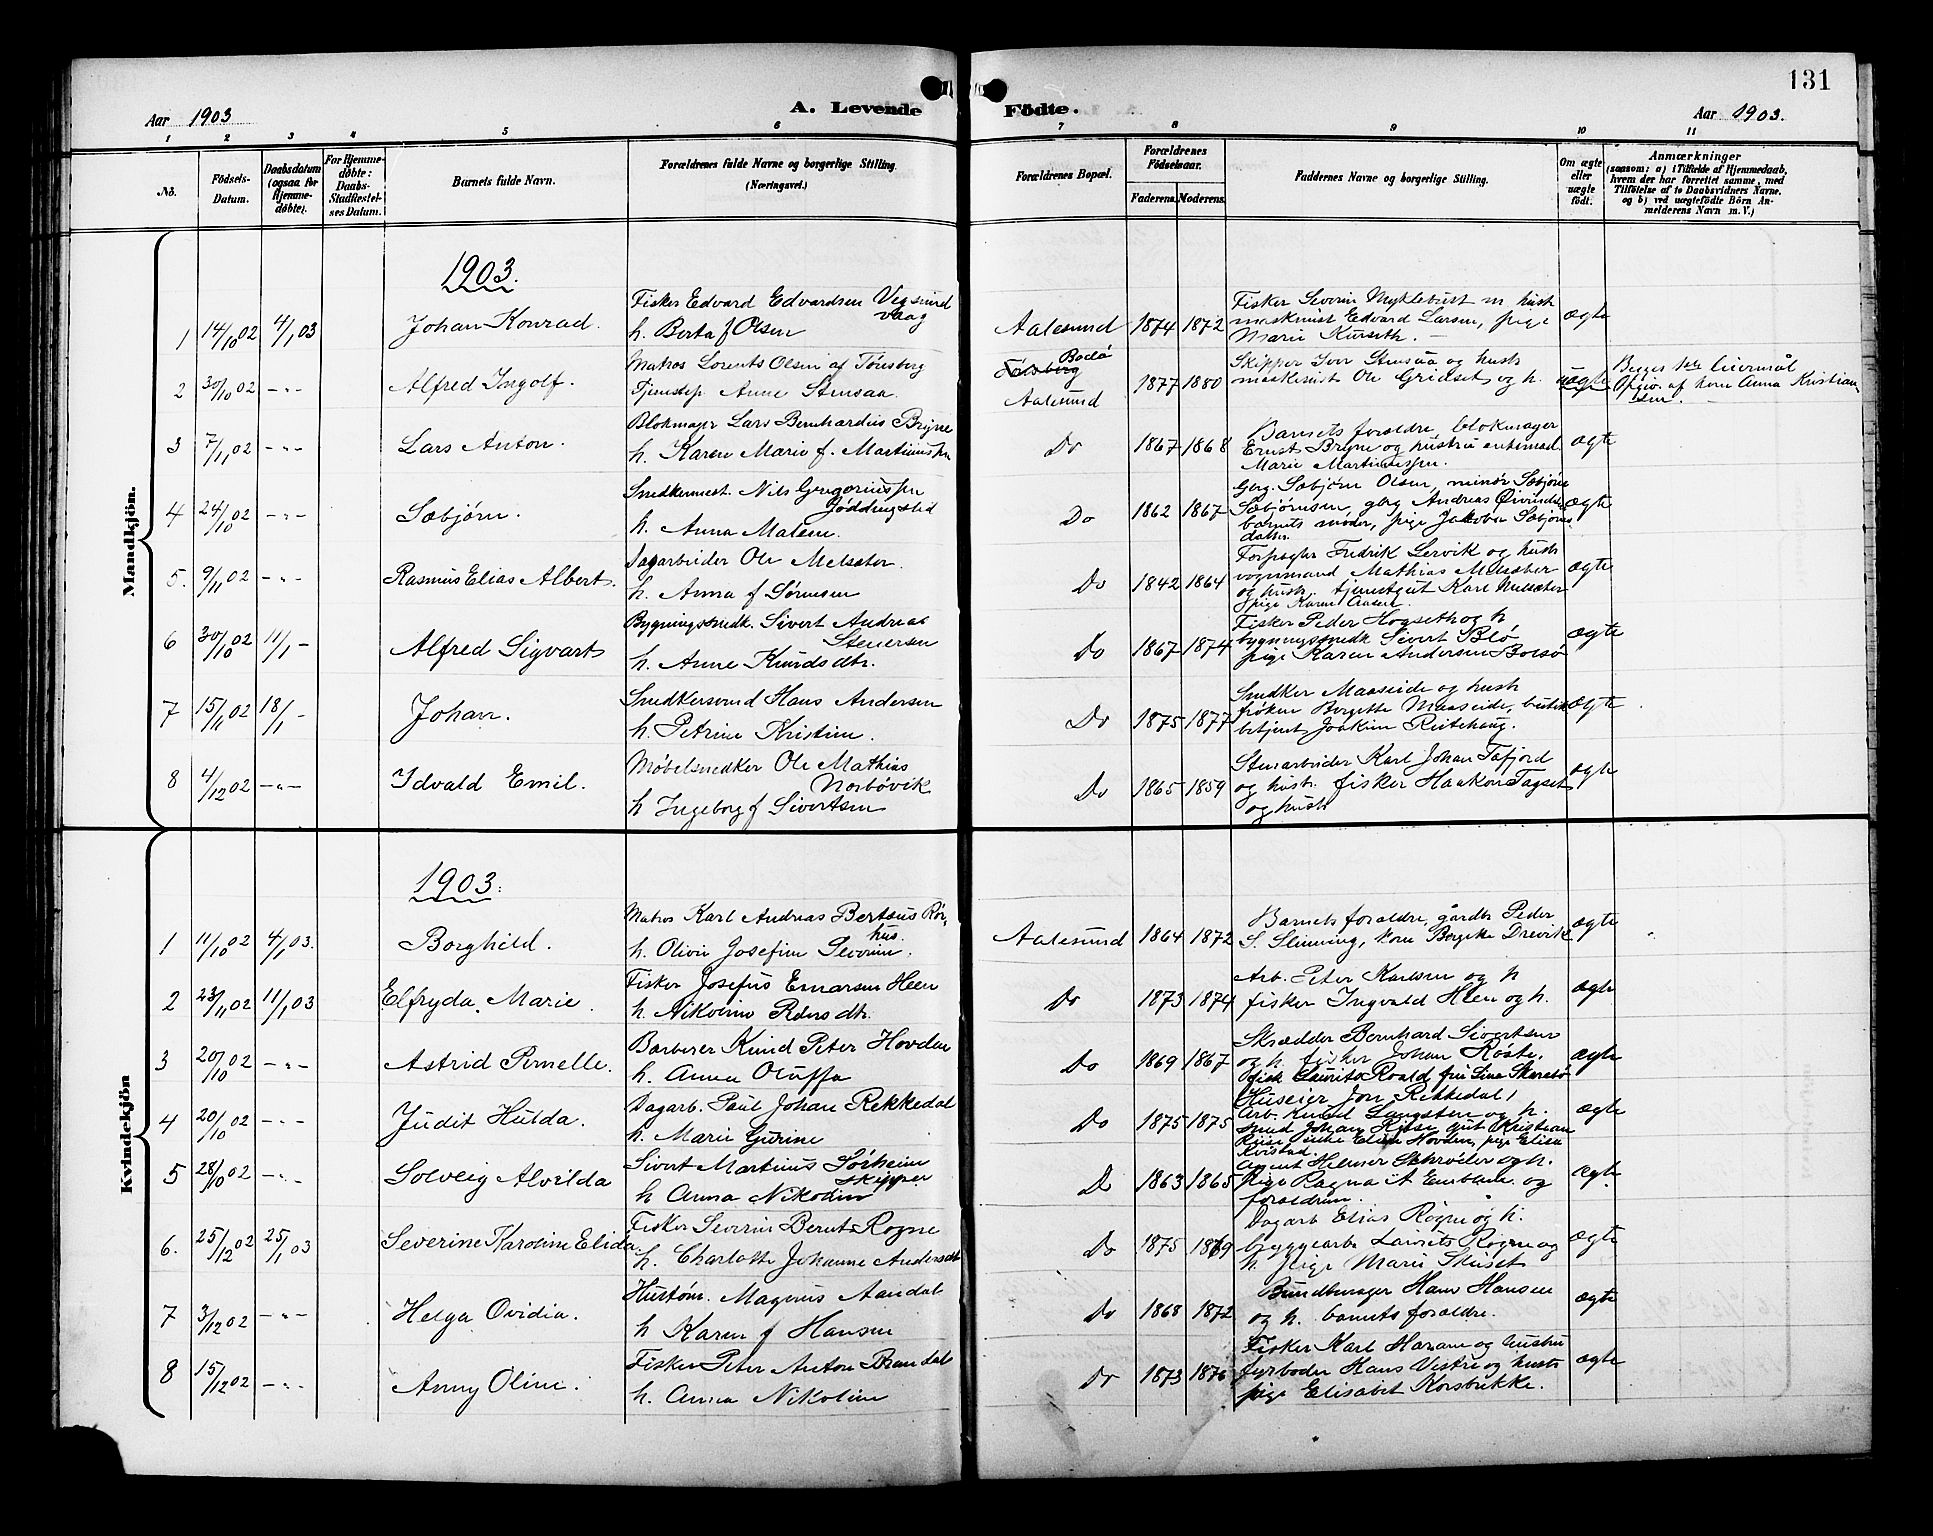 131
Aar 1903
A. Levende
Födte.
Aar 1903.
1 2 3 4 5 6 7 8 9 10 11
No.
Födsels-Datum.
Daabsdatum (ogsaa for Hjemme-döbte).
For Hjemme-döbte: Daabs-Stadfæstelses Datum.
Barnets fulde Navn.
Forældrenes fulde Navne og borgerlige Stilling.
(Næringsvei.)
Forældrenes Bopæl.
Forældrenes Födselsaar.
Faderens. Moderens.
Faddernes Navne og borgerlige Stilling.
Om ægte eller uægte födt.
Anmærkninger
(saasom: a) i Tilfælde af Hjemmedaab,
hvem der har forrettet samme, med
Tilföielse af to Daabsvidners Navne,
og b) ved uægtefödte Börn An-
melderens Navn m. V.)
Mandkjön.
1903.
1 14/10 02 4/1 03 Johan Konrad.
Fisker Edvard Edvardsen Vegsund
vaag
h. Berta f Olsen
Aalesund 1874 1872
Fisker Severin Myklebust m hust
maskinist Edvard Larsen, pige
Marie Kurseth.
ægte
2 30/10 02 -"- Alfred Ingolf.
Matros Lorents Olsen af Tönsberg
Tjenstep Anne Stensaa.
Tönsberg Bodö
Aalesund 1877 1880
Skipper Iver Stensaa og hust
maskinist Ole Gridset og h.
uægte
Begges 1ste leiermål
Opgiv. af kone Anna Kristian
sen.
3 7/11 02 -"- Lars Anton.
Blokmager Lars Bernhardius Bryne
h. Karen Marie f. Martinussen
Do 1867 1868
Barnets forældre, blokmager
Ernst Bryne og hustru
Marie Martinussen.
ægte
4 24/10 02 -"- Sæbjörn.
Snedkermest. Nils Gregoriussen
Göddingstad
h. Anna Malene
Do 1862 1867
Gbrg. Sæbjörn Olsen, minör Sæbjörn
Sæbjörnsen, gbrg Andreas
barnets moder, pige Jakoba Sæbjörns
datter.
ægte
5. 9/11 02 -"- Rasmus Elias Albert.
Dagarbeider Ole Melsæter
h. Anna f Sörensen
Do 1842 1864
Forpagter Fredrik Lervik og hust
vognmand Mathias Melsæter
og hust. tjenestgut Karl Melsæter
pige Karen Aasen.
ægte
6 30/10 02 11/1 - Alfred Sigvart
Bygningssnedk. Sivert Andreas
Stenersen
h. Anne Knudsdtr.
Do 1867 1874
Fisker Peder Hogseth og h
bygningssnedk Sivert Blö
pige Karen Andersen Bolsö
ægte
7 15/11 02 18/1 - Johan.
Snedkersvend Hans Andersen
h. Petrine Kristine.
Do 1875 1877
Snedker Maaseide og hust
fröken Bergette Maaseide, butik
betjent Joakim Reitehaug.
ægte
8 4/12 02 -"- Idvald Emil.
Möbelsnedker Ole Mathias
Norbövik
h Ingeborg f Sivertsen
Do 1865 1859
Stenarbeider Karl Johan Tafjord
og hust. fisker Haakon Tagset
og hust
ægte
Kvindekjön
1903.
1 11/10 02 4/1 03. Borghild.
Matros Karl Andreas Bertæus Rör-
hus.
h. Olivie Josefine Severine.
Aalesund 1864 1872
Barnets forældre, gårdbr Peder
S. Slinning, kone Bergitte Drevik
ægte
2 23/11 02 11/1 03 Elfryda Marie
Fisker Josefus Einarsen Heen
h. Nikoline Pedersdtr.
Do 1873 1874
Arb. Peter Karlsen og h
fisker Ingvald Heen og h.
ægte
3 20/10 02 -"- Astrid Pernelle.
Barberer Knud Peter Hovden
h. Anna Oluffa
Do 1869 1867
Skrædder Bernhard Sivertsen
og h. fisker Johan Röste.
fisk Laurits Roald, frk Lina Skaresö
ægte
4 20/10 02 -"- Judit Hulda.
Dagarb. Paul Johan Rekkedal
h. Marie Gurine
Do 1875 1875
Huseier Jon Rekkedal,
Arb. Knud Langsten og h.
smed Johan Riise, gut Kristian
Riise, enke Eline Hovden, pige Elisa
Kvistad.
ægte
5 28/10 02 -"- Solveig Alvilda
Sivert Martinus Sörheim
skipper
h Anna Nikoline
Do 1863 1865
Agent Helmer Schröder og h.
Pige Ragna A Emblem og
forældrene.
ægte
6. 25/12 02 25/1 03 Severine Karoline Elida
Fisker Severin Bernt Rogne
h. Charlotte Johanne Andersdt
Do 1875 1879
Dagarb Elias Rogne og h.
byggearb. Laurits Rogne og
h. Pige Marie Skuset
ægte
7 3/12 02 -"- Helga Ovidia.
Hustöm. Magnus Aandal
h Karen f Hansen
Do 1868 1872
Bundtmager Hans Hansen
og h. barnets forældre.
ægte
8 15/12 02 -"- Anny Oline.
Fisker Peter Anton Brandal
h. Anna Nikoline
Do 1873 1876
Fisker Karl Haram og hustru
fyrböder Hans Vestre og hust
pige Elisabet Korsbrekke.
ægte